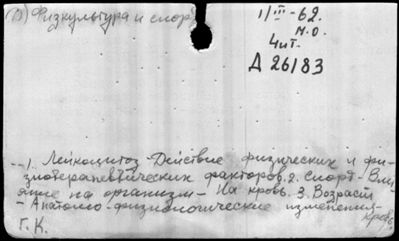 В) Физкультура и спорт
11/III-62.
м.о.
Чит.
Д 26183
--1. Лейкоцитоз - Действие физических и фи-
зиотерапевтических факторов. 2. Спорт - Вли-
яние на организм - На кровь. 3. Возраст
- Анатомо-физиологические изменения -
Кровь.
Г. К.